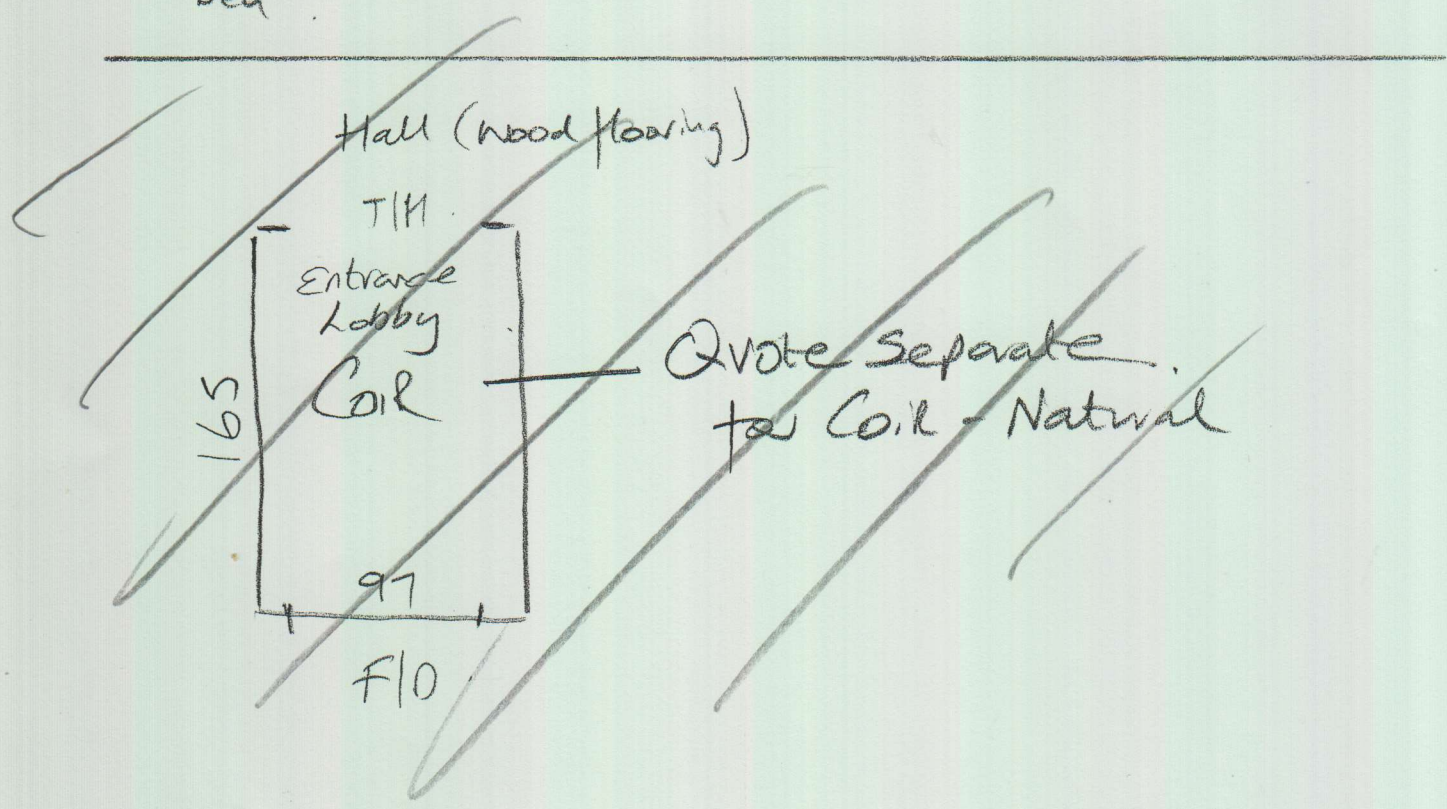 bed
Hall (wood flooring)
T/H
Entrance
Lobby
CoiR
165
97
F/O
Quote Separate.
for CoiR - Natural